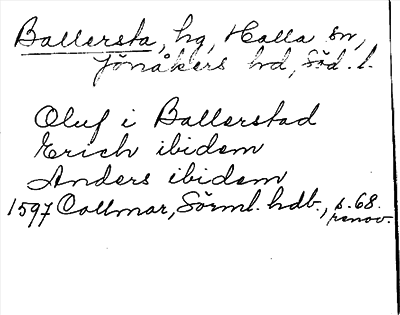 Ballersta, hg, Halla sn,
Jönåkers hd, Söd. l.
Oluf i Ballerstad
Erich ibidem
Anders ibidem
1597 Collmar, Sörml. hdb., s. 68.
renov.